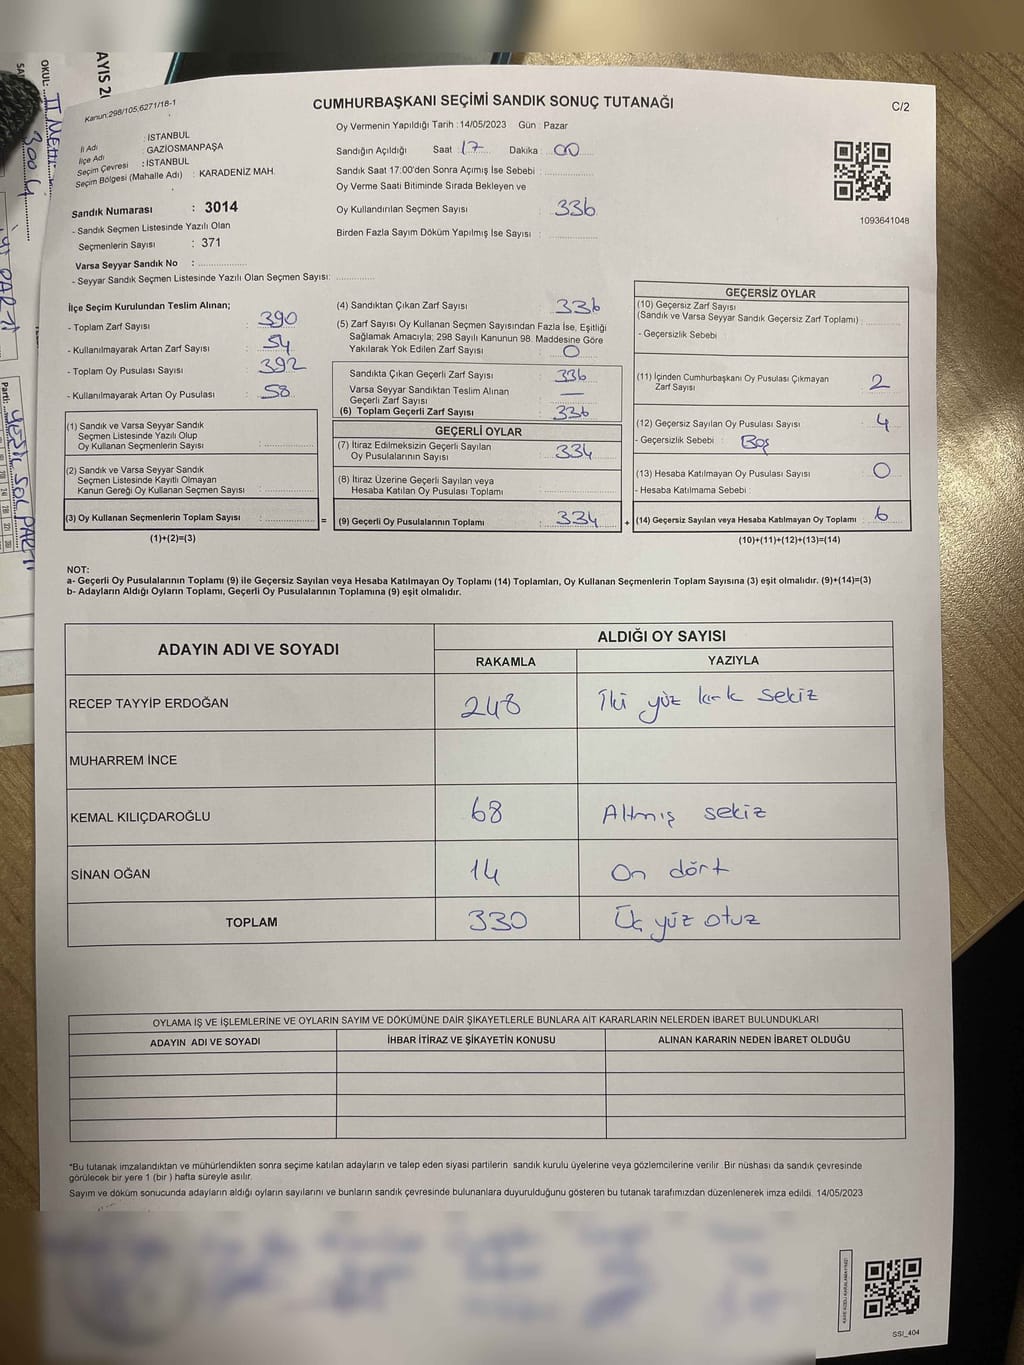 AYIS 2
OKUL:
3004
Kanun:298/105,6271/18-1
CUMHURBAŞKANI SEÇİMİ SANDIK SONUÇ TUTANAĞI
C/2
Oy Vermenin Yapıldığı Tarih :14/05/2023 Gün : Pazar
İl Adı : İSTANBUL
İlçe Adı : GAZİOSMANPAŞA
Seçim Çevresi : İSTANBUL
Seçim Bölgesi (Mahalle Adı) : KARADENİZ MAH.
Sandığın Açıldığı Saat : 17 Dakika : 00
Sandık Saat 17:00'den Sonra Açımış İse Sebebi :
Oy Verme Saati Bitiminde Sırada Bekleyen ve
Oy Kullandırılan Seçmen Sayısı : 336
Birden Fazla Sayım Döküm Yapılmış İse Sayısı :
1093641048
Sandık Numarası : 3014
- Sandık Seçmen Listesinde Yazılı Olan
Seçmenlerin Sayısı : 371
Varsa Seyyar Sandık No :
- Seyyar Sandık Seçmen Listesinde Yazılı Olan Seçmen Sayısı:
İlçe Seçim Kurulundan Teslim Alınan;
- Toplam Zarf Sayısı : 390
- Kullanılmayarak Artan Zarf Sayısı : 54
- Toplam Oy Pusulası Sayısı : 392
- Kullanılmayarak Artan Oy Pusulası : 58
(1) Sandık ve Varsa Seyyar Sandık
Seçmen Listesinde Yazılı Olup
Oy Kullanan Seçmenlerin Sayısı :
(2) Sandık ve Varsa Seyyar Sandık
Seçmen Listesinde Kayıtlı Olmayan
Kanun Gereği Oy Kullanan Seçmen Sayısı :
(3) Oy Kullanan Seçmenlerin Toplam Sayısı :
(1)+(2)=(3)
(4) Sandıktan Çıkan Zarf Sayısı : 336
(5) Zarf Sayısı Oy Kullanan Seçmen Sayısından Fazla İse, Eşitliği
Sağlamak Amacıyla; 298 Sayılı Kanunun 98. Maddesine Göre
Yakılarak Yok Edilen Zarf Sayısı : 0
Sandıkta Çıkan Geçerli Zarf Sayısı : 336
Varsa Seyyar Sandıktan Teslim Alınan
Geçerli Zarf Sayısı : —
(6) Toplam Geçerli Zarf Sayısı : 336
GEÇERLİ OYLAR
(7) İtiraz Edilmeksizin Geçerli Sayılan
Oy Pusulalarının Sayısı : 334
(8) İtiraz Üzerine Geçerli Sayılan veya
Hesaba Katılan Oy Pusulası Toplamı :
= (9) Geçerli Oy Pusulalarının Toplamı : 334
GEÇERSİZ OYLAR
(10) Geçersiz Zarf Sayısı
(Sandık ve Varsa Seyyar Sandık Geçersiz Zarf Toplamı) :
- Geçersizlik Sebebi :
(11) İçinden Cumhurbaşkanı Oy Pusulası Çıkmayan
Zarf Sayısı : 2
(12) Geçersiz Sayılan Oy Pusulası Sayısı : 4
- Geçersizlik Sebebi : Boş
(13) Hesaba Katılmayan Oy Pusulası Sayısı : 0
- Hesaba Katılmama Sebebi :
+ (14) Geçersiz Sayılan veya Hesaba Katılmayan Oy Toplamı : 6
(10)+(11)+(12)+(13)=(14)
NOT:
a- Geçerli Oy Pusulalarının Toplamı (9) ile Geçersiz Sayılan veya Hesaba Katılmayan Oy Toplamı (14) Toplamları, Oy Kullanan Seçmenlerin Toplam Sayısına (3) eşit olmalıdır. (9)+(14)=(3)
b- Adayların Aldığı Oyların Toplamı, Geçerli Oy Pusulalarının Toplamına (9) eşit olmalıdır.
ADAYIN ADI VE SOYADI ALDIĞI OY SAYISI
RAKAMLA YAZIYLA
RECEP TAYYİP ERDOĞAN 248 İki yüz kırk sekiz
MUHARREM İNCE
KEMAL KILIÇDAROĞLU 68 Altmış sekiz
SİNAN OĞAN 14 On dört
TOPLAM 330 Üç yüz otuz
OYLAMA İŞ VE İŞLEMLERİNE VE OYLARIN SAYIM VE DÖKÜMÜNE DAİR ŞİKAYETLERLE BUNLARA AİT KARARLARIN NELERDEN İBARET BULUNDUKLARI
ADAYIN ADI VE SOYADI İHBAR İTİRAZ VE ŞİKAYETİN KONUSU ALINAN KARARIN NEDEN İBARET OLDUĞU
*Bu tutanak imzalandıktan ve mühürlendikten sonra seçime katılan adayların ve talep eden siyasi partilerin sandık kurulu üyelerine veya gözlemcilerine verilir. Bir nüshası da sandık çevresinde
görülecek bir yere 1 (bir ) hafta süreyle asılır.
Sayım ve döküm sonucunda adayların aldığı oyların sayılarını ve bunların sandık çevresinde bulunanlara duyurulduğunu gösteren bu tutanak tarafımızdan düzenlenerek imza edildi. 14/05/2023
SSI_404
Parti: YEŞİL SOL PARTİ